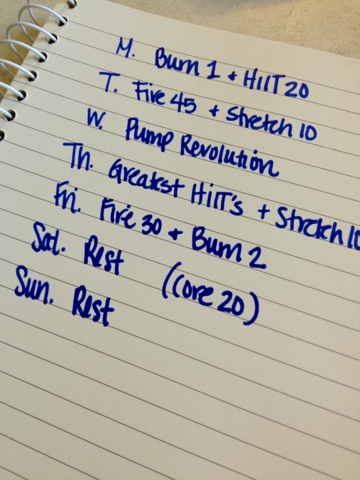 M. Burn 1 + HIIT 20
T. Fire 45 + Stretch 10
W. Pump Revolution
Th. Greatest HIIT's + Stretch 10
Fri. Fire 30 + Burn 2
Sat. Rest (Core 20)
Sun. Rest